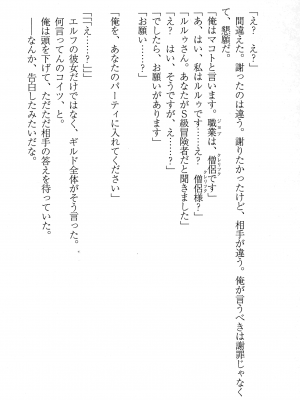 「え？　え？」
　間違えた。謝ったのは違う。謝りたかったけど、相手が違う。俺が言うべきは謝罪じゃなく
て、懇願だ。
「俺はマコトと言います。職業は、僧侶です」
「あ、はい、私はルルゥです……え？　僧侶様？」
「ルルゥさん。あなたがＳ級冒険者だと聞きました」
「え？　はい、そうですが、え……？」
「でしたら、お願いがあります」
「お願い……？」
「俺を、あなたのパーティに入れてください」
「「え……？」」
　エルフの彼女だけではなく、ギルド全体がそう言った。
　何言ってんのコイツ、と。
　俺は頭を下げて、ただただ相手の答えを待っていた。
　――なんか、告白したみたいだな。